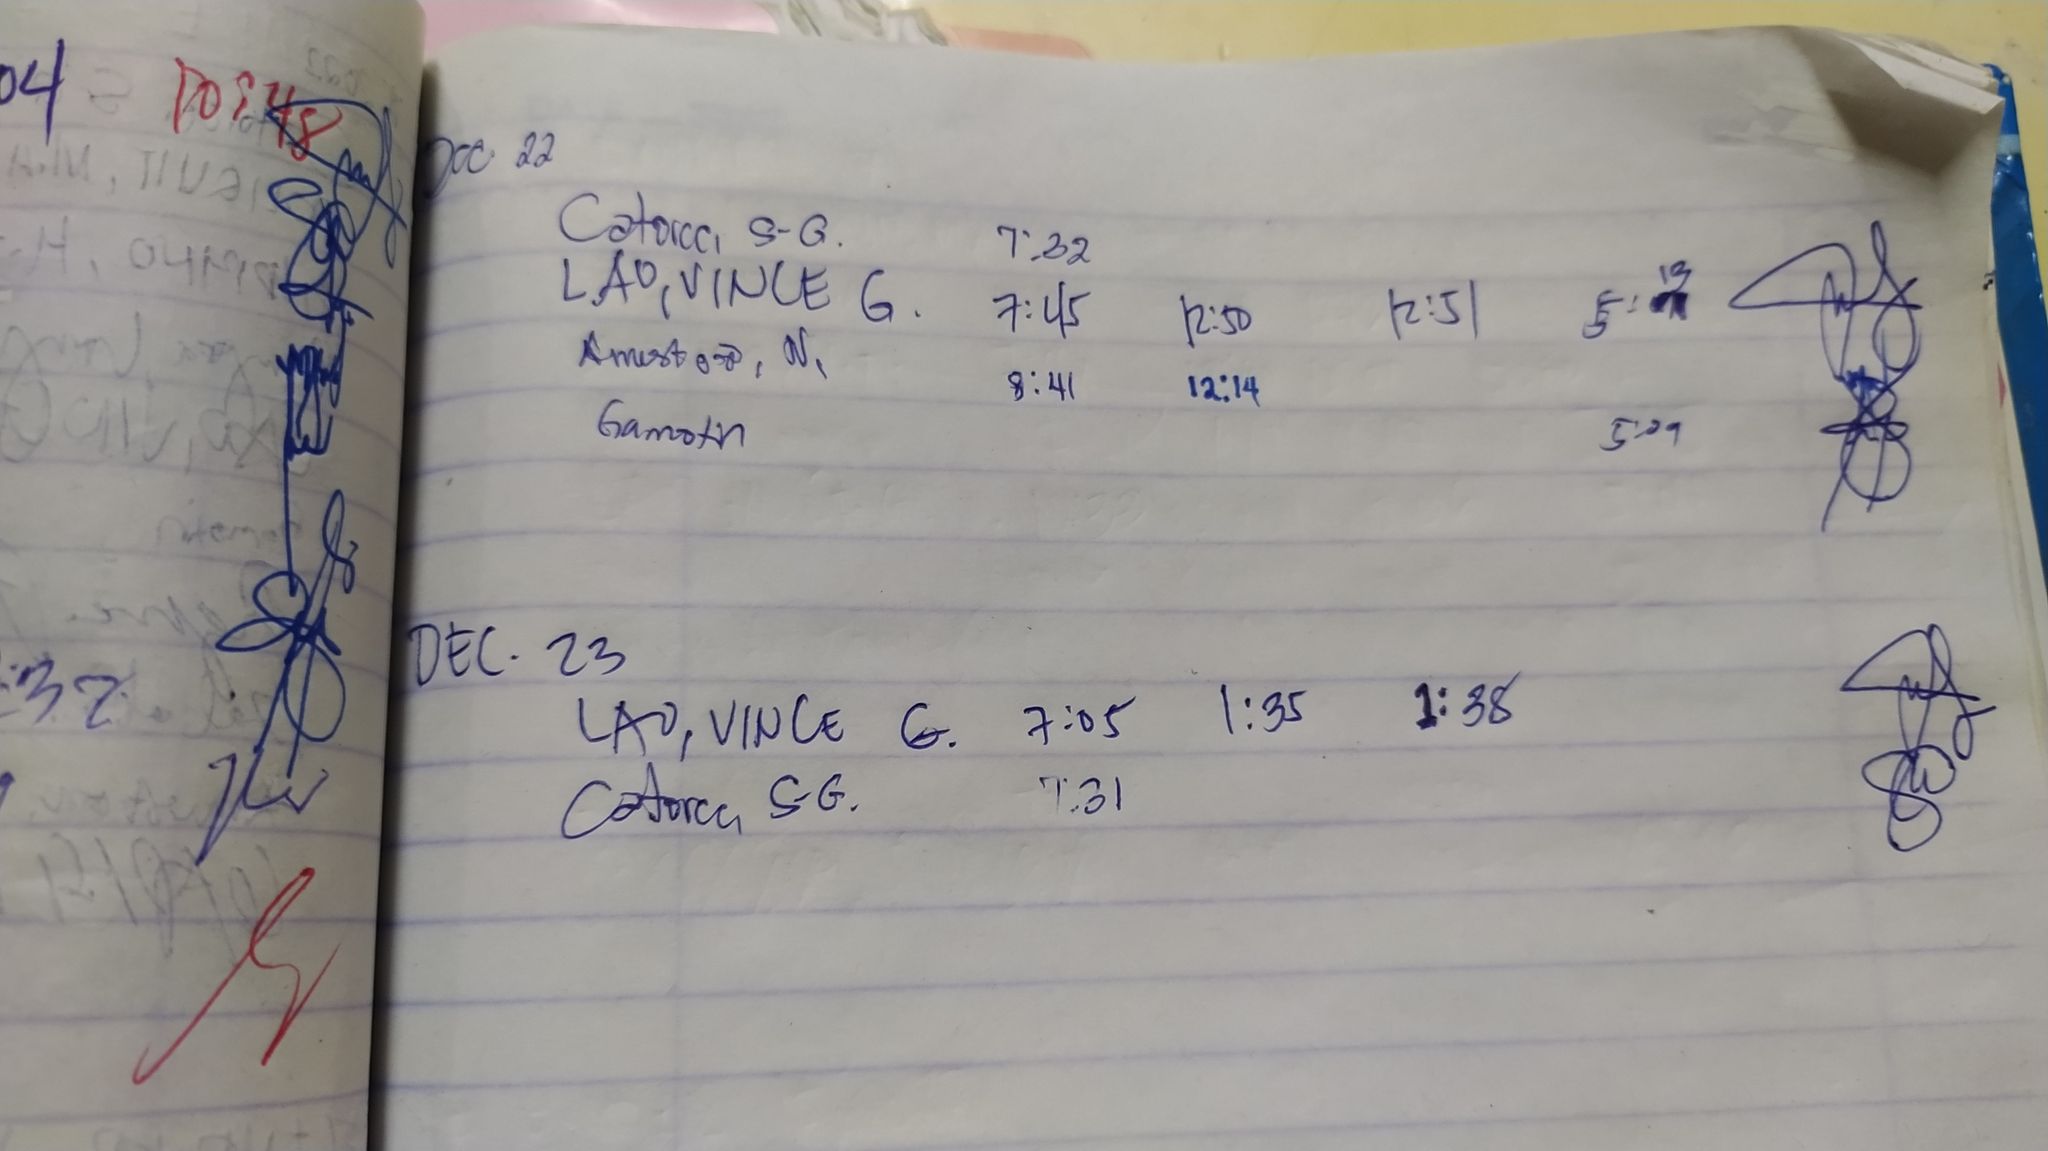 04
10:48
:32
DEC. 22
Catorce, S-G. 7:32
LAO, VINCE G. 7:45 12:50 12:51 5:
N. 8:41 12:14
Gamotin 5:29
DEC. 23
LAO, VINCE G. 7:05 1:35 1:38
Catorce, S-G. 7:31